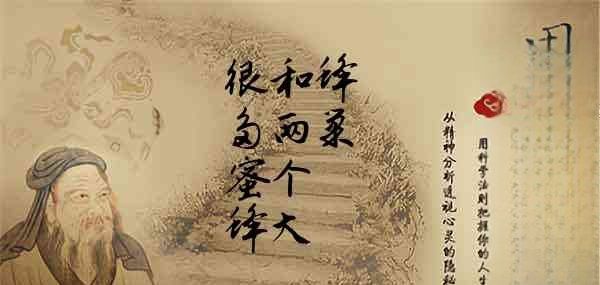 用
用科学法则把握你的人生
从精神分析透视心灵的隐秘
绛菜
和两个大
很多蜜绛